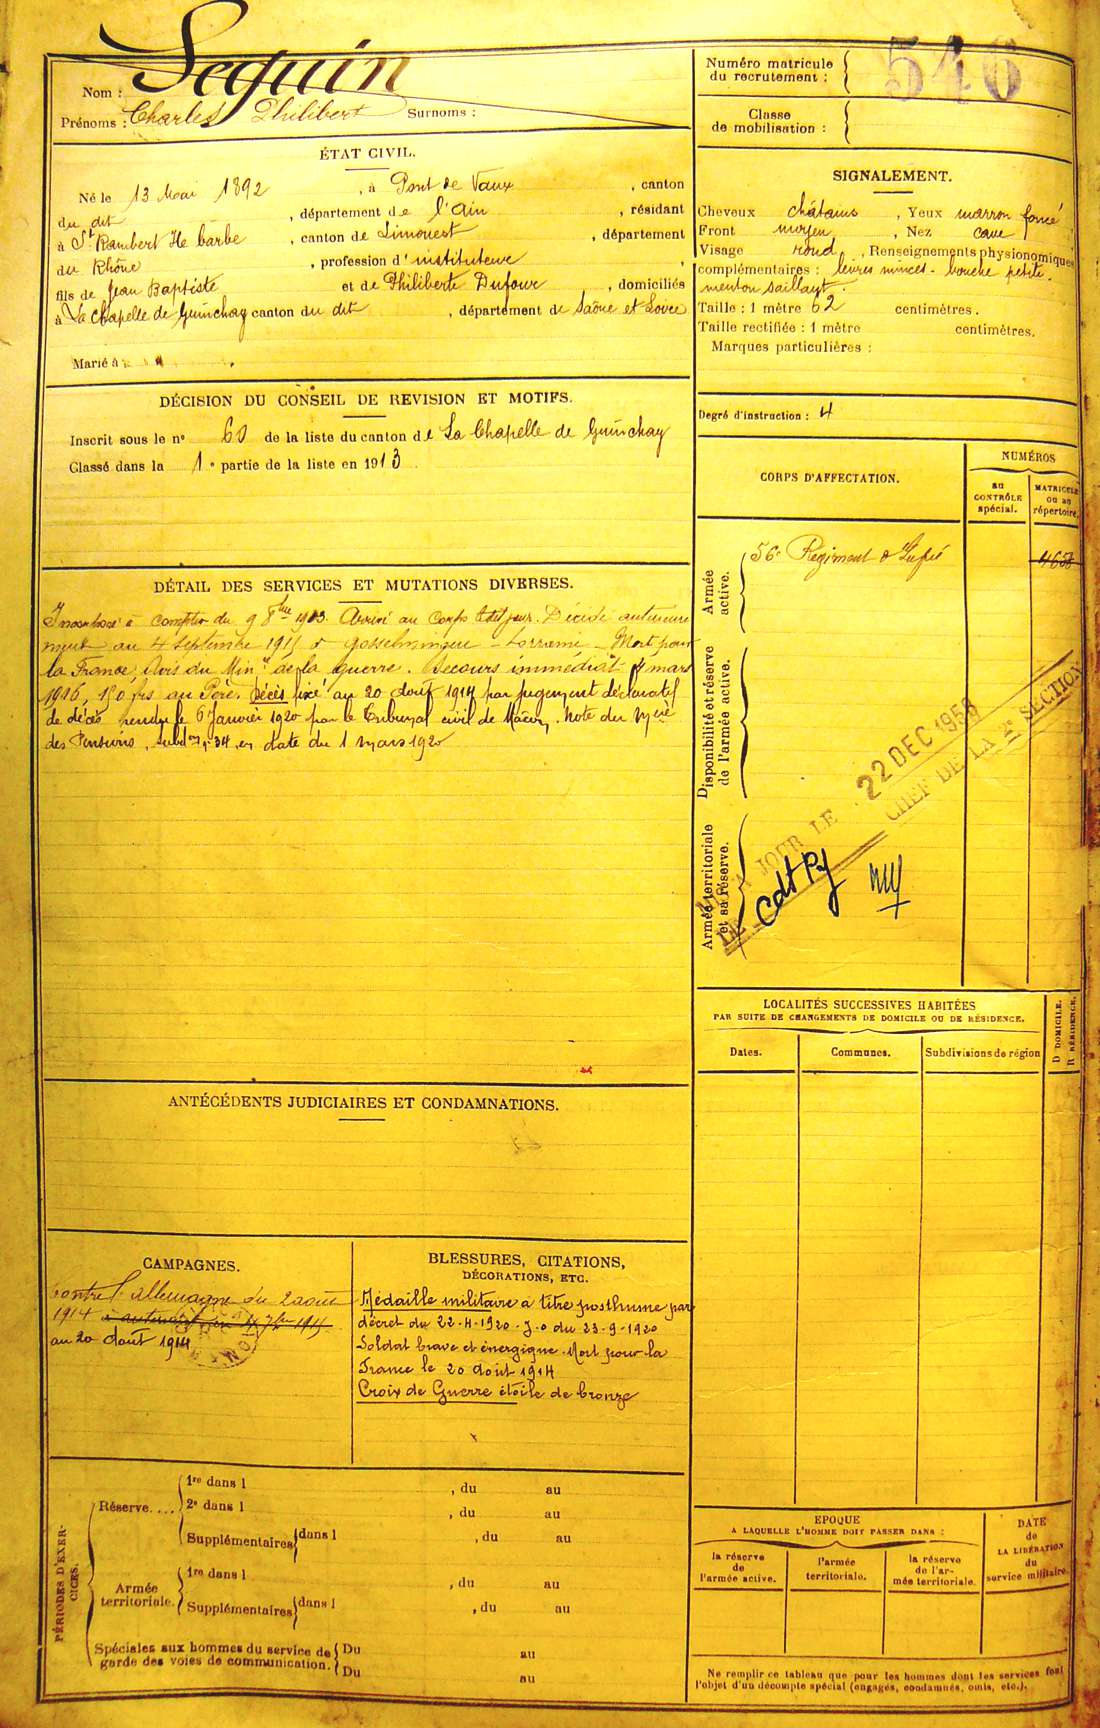 Nom : Seguin
Prénoms : Charles Philibert Surnoms :
Numéro matricule
du recrutement : 546
Classe
de mobilisation :
ÉTAT CIVIL.
Né le 13 Mai 1892, à Pont de Vaux, canton
du dit, département de l'Ain, résidant
à St Rambert Ile barbe, canton de Limonest, département
du Rhône, profession d'instituteur,
fils de Jean Baptiste et de Philiberte Dufour, domiciliés
à La Chapelle de Guinchay canton du dit, département de Saône et Loire
Marié à
SIGNALEMENT.
Cheveux châtains, Yeux marron foncé
Front moyen, Nez cave
Visage rond, Renseignements physionomiques
complémentaires : lèvres minces - bouche petite.
menton saillant.
Taille : 1 mètre 62 centimètres.
Taille rectifiée : 1 mètre centimètres.
Marques particulières :
Degré d'instruction : 4
DÉCISION DU CONSEIL DE REVISION ET MOTIFS.
Inscrit sous le nº 60 de la liste du canton de La Chapelle de Guinchay
Classé dans la 1e partie de la liste en 1913
CORPS D'AFFECTATION.
NUMÉROS
au
CONTRÔLE
spécial.
MATRICULE
ou au
répertoire.
Armée
active.
56e Régiment d'Infie
4658
Disponibilité et réserve
de l'armée active.
Armée territoriale
et sa réserve.
MIS A JOUR LE 22 DEC 1958
LE CHEF DE LA 2e SECTION
DÉTAIL DES SERVICES ET MUTATIONS DIVERSES.
Incorporé à compter du 9 8bre 1913. Arrivé au Corps ledit jour. Décédé antérieure
ment au 4 Septembre 1915 à Gosselmingen - Lorraine - Mort pour
la France Avis du Minre de la guerre. Secours immédiat mars
1916, 150 frs au Père. Décès fixé au 20 Août 1914 par jugement déclaratif
de décès rendu le 6 Janvier 1920 par le Tribunal civil de Mâcon, Note du
des Pensions, en date du 1 Mars 1920
LOCALITÉS SUCCESSIVES HABITÉES
PAR SUITE DE CHANGEMENTS DE DOMICILE OU DE RÉSIDENCE.
D DOMICILE.
R RÉSIDENCE.
Dates.
Communes.
Subdivisions de région
ANTÉCÉDENTS JUDICIAIRES ET CONDAMNATIONS.
CAMPAGNES.
Contre l'Allemagne du 2 août
1914 à antérieurement 4 7bre 1915
au 20 Août 1914
BLESSURES, CITATIONS,
DÉCORATIONS, ETC.
Médaille militaire à titre posthume par
décret du 22-4-1920. J.o du 23-9-1920
Soldat brave et énergique. Mort pour la
France le 20 Août 1914
Croix de Guerre étoile de bronze
PÉRIODES D'EXER-
CICES.
Réserve....
1re dans l , du au
2e dans l , du au
Supplémentaires dans l , du au
Armée
territoriale.
1re dans l , du au
Supplémentaires dans l , du au
Spéciales aux hommes du service de
garde des voies de communication.
Du au
Du au
EPOQUE
A LAQUELLE L'HOMME DOIT PASSER DANS :
la réserve
de
l'armée active.
l'armée
territoriale.
la réserve
de l'ar-
mée territoriale.
DATE
de
LA LIBÉRATION
du
service militaire.
Ne remplir ce tableau que pour les hommes dont les services font
l'objet d'un décompte spécial (engagés, condamnés, omis, etc.).